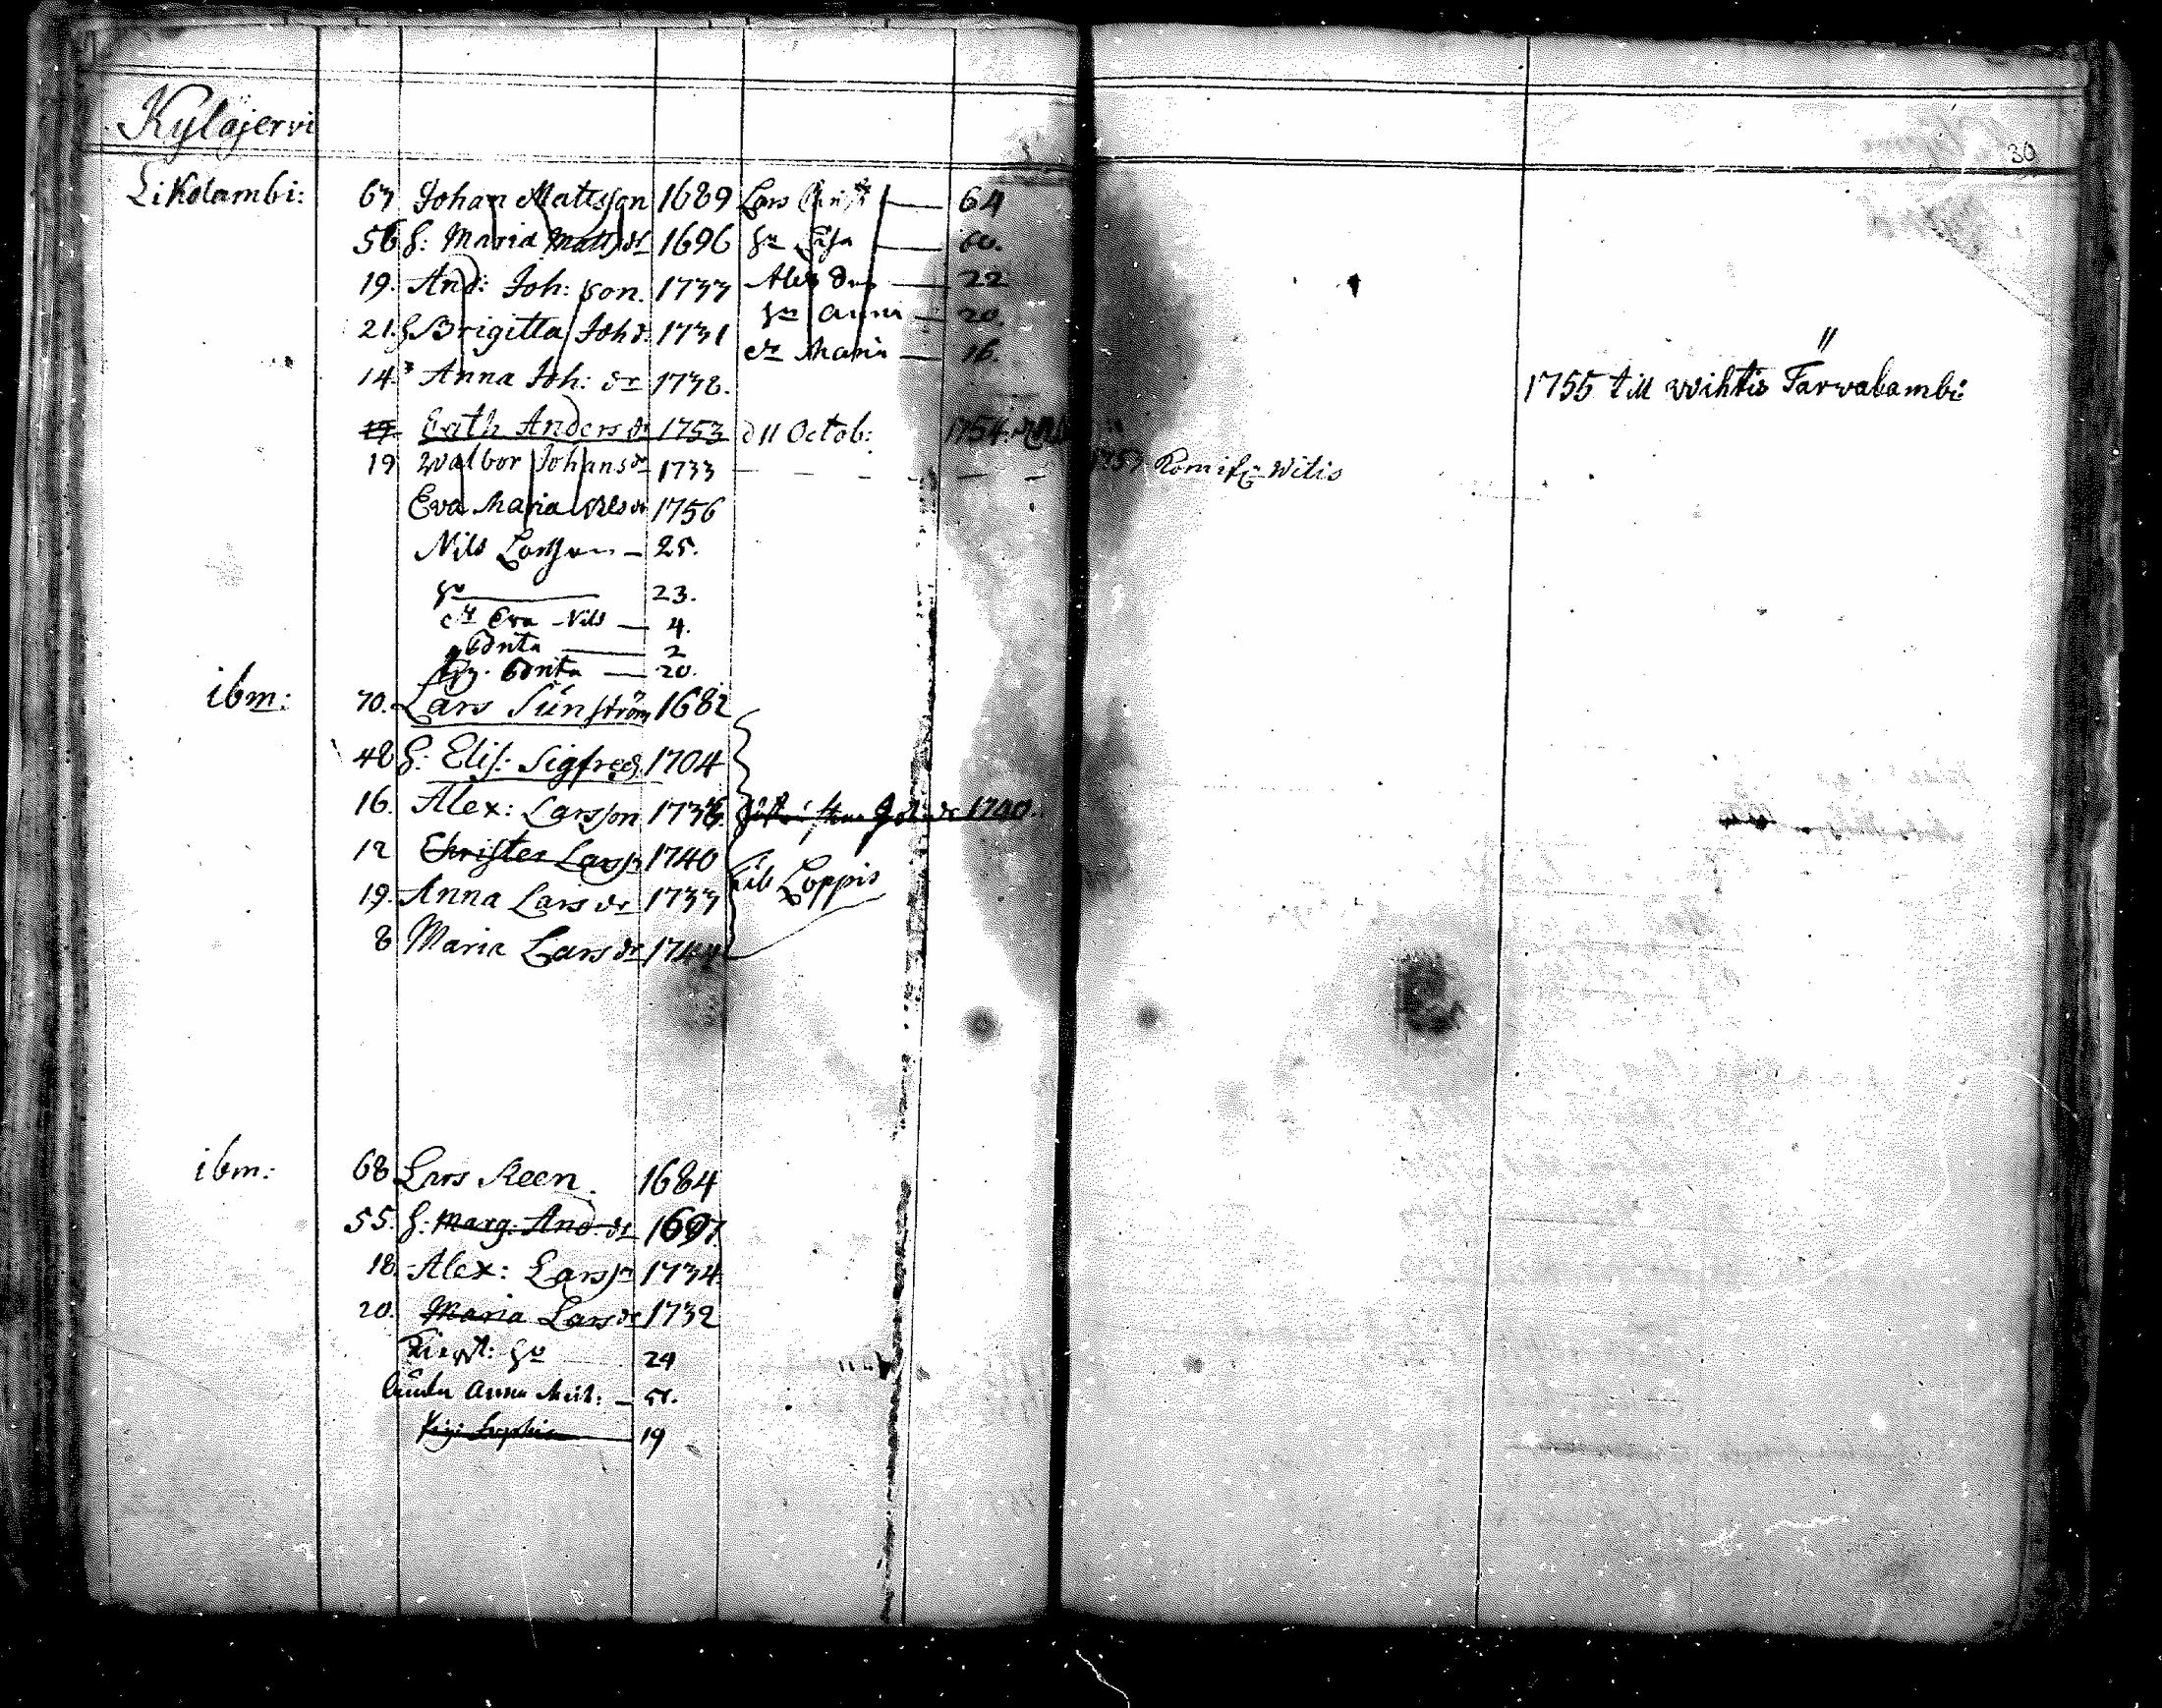 Kyläjervi
30
Likolambi: 63 Johan Mattsson 1689 Lars 64
56 h: Maria Mattsdr 1696 hu Lisa 60.
19. And: Joh: son. 1733 Alex 22
21. h Brigitta Joh d. 1731 hu Anna 20.
14. Anna Joh: dr 1738. dr Maria 16.
1755 till Wihtis Tarvalambi
Cath Anders dr 1753 d 11 Octob: 1754
19 Walbor Johansdr 1733 1753 Witis
Eva Maria Nilsdr 1756
Nils Larsson 25.
hu 23.
dr Eva Nils 4.
Brita 2
Brita 20.
ibm: 70. Lars Sünström 1682
48 h: Elis: Sigfreds 1704
16. Alex: Larsson 1736 1740.
12 Christer Larss 1740
Loppis
19. Anna Lars dr 1733
8 Maria Lars dr 1744
ibm: 68 Lars Keen. 1684
55. h: Marg. And. dr 1697
18. Alex: Larss 1734
20. Maria Lars dr 1732
hu 24
Anna Mich:
Pig: Sophia 19